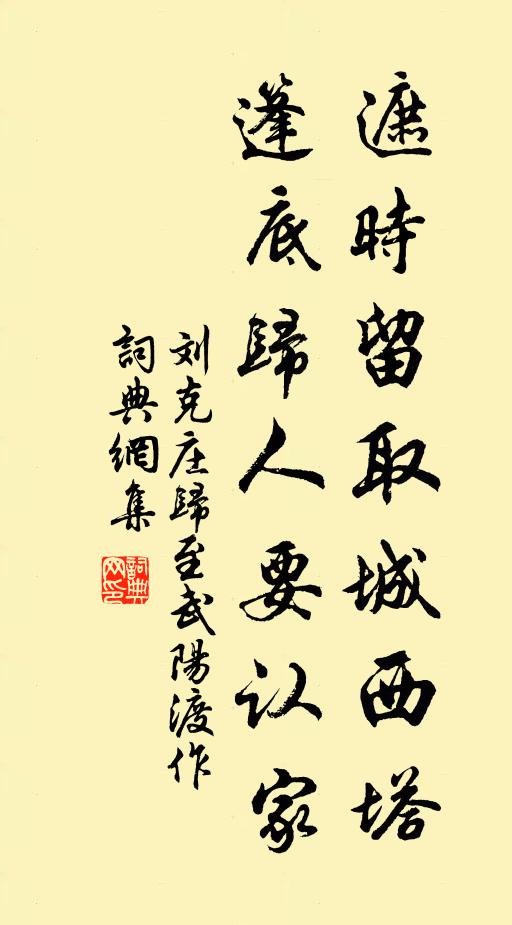 遮時留取城西塔
蓬底歸人要认家
刘克庄歸至武陽渡作
詞典網集
詞典网印